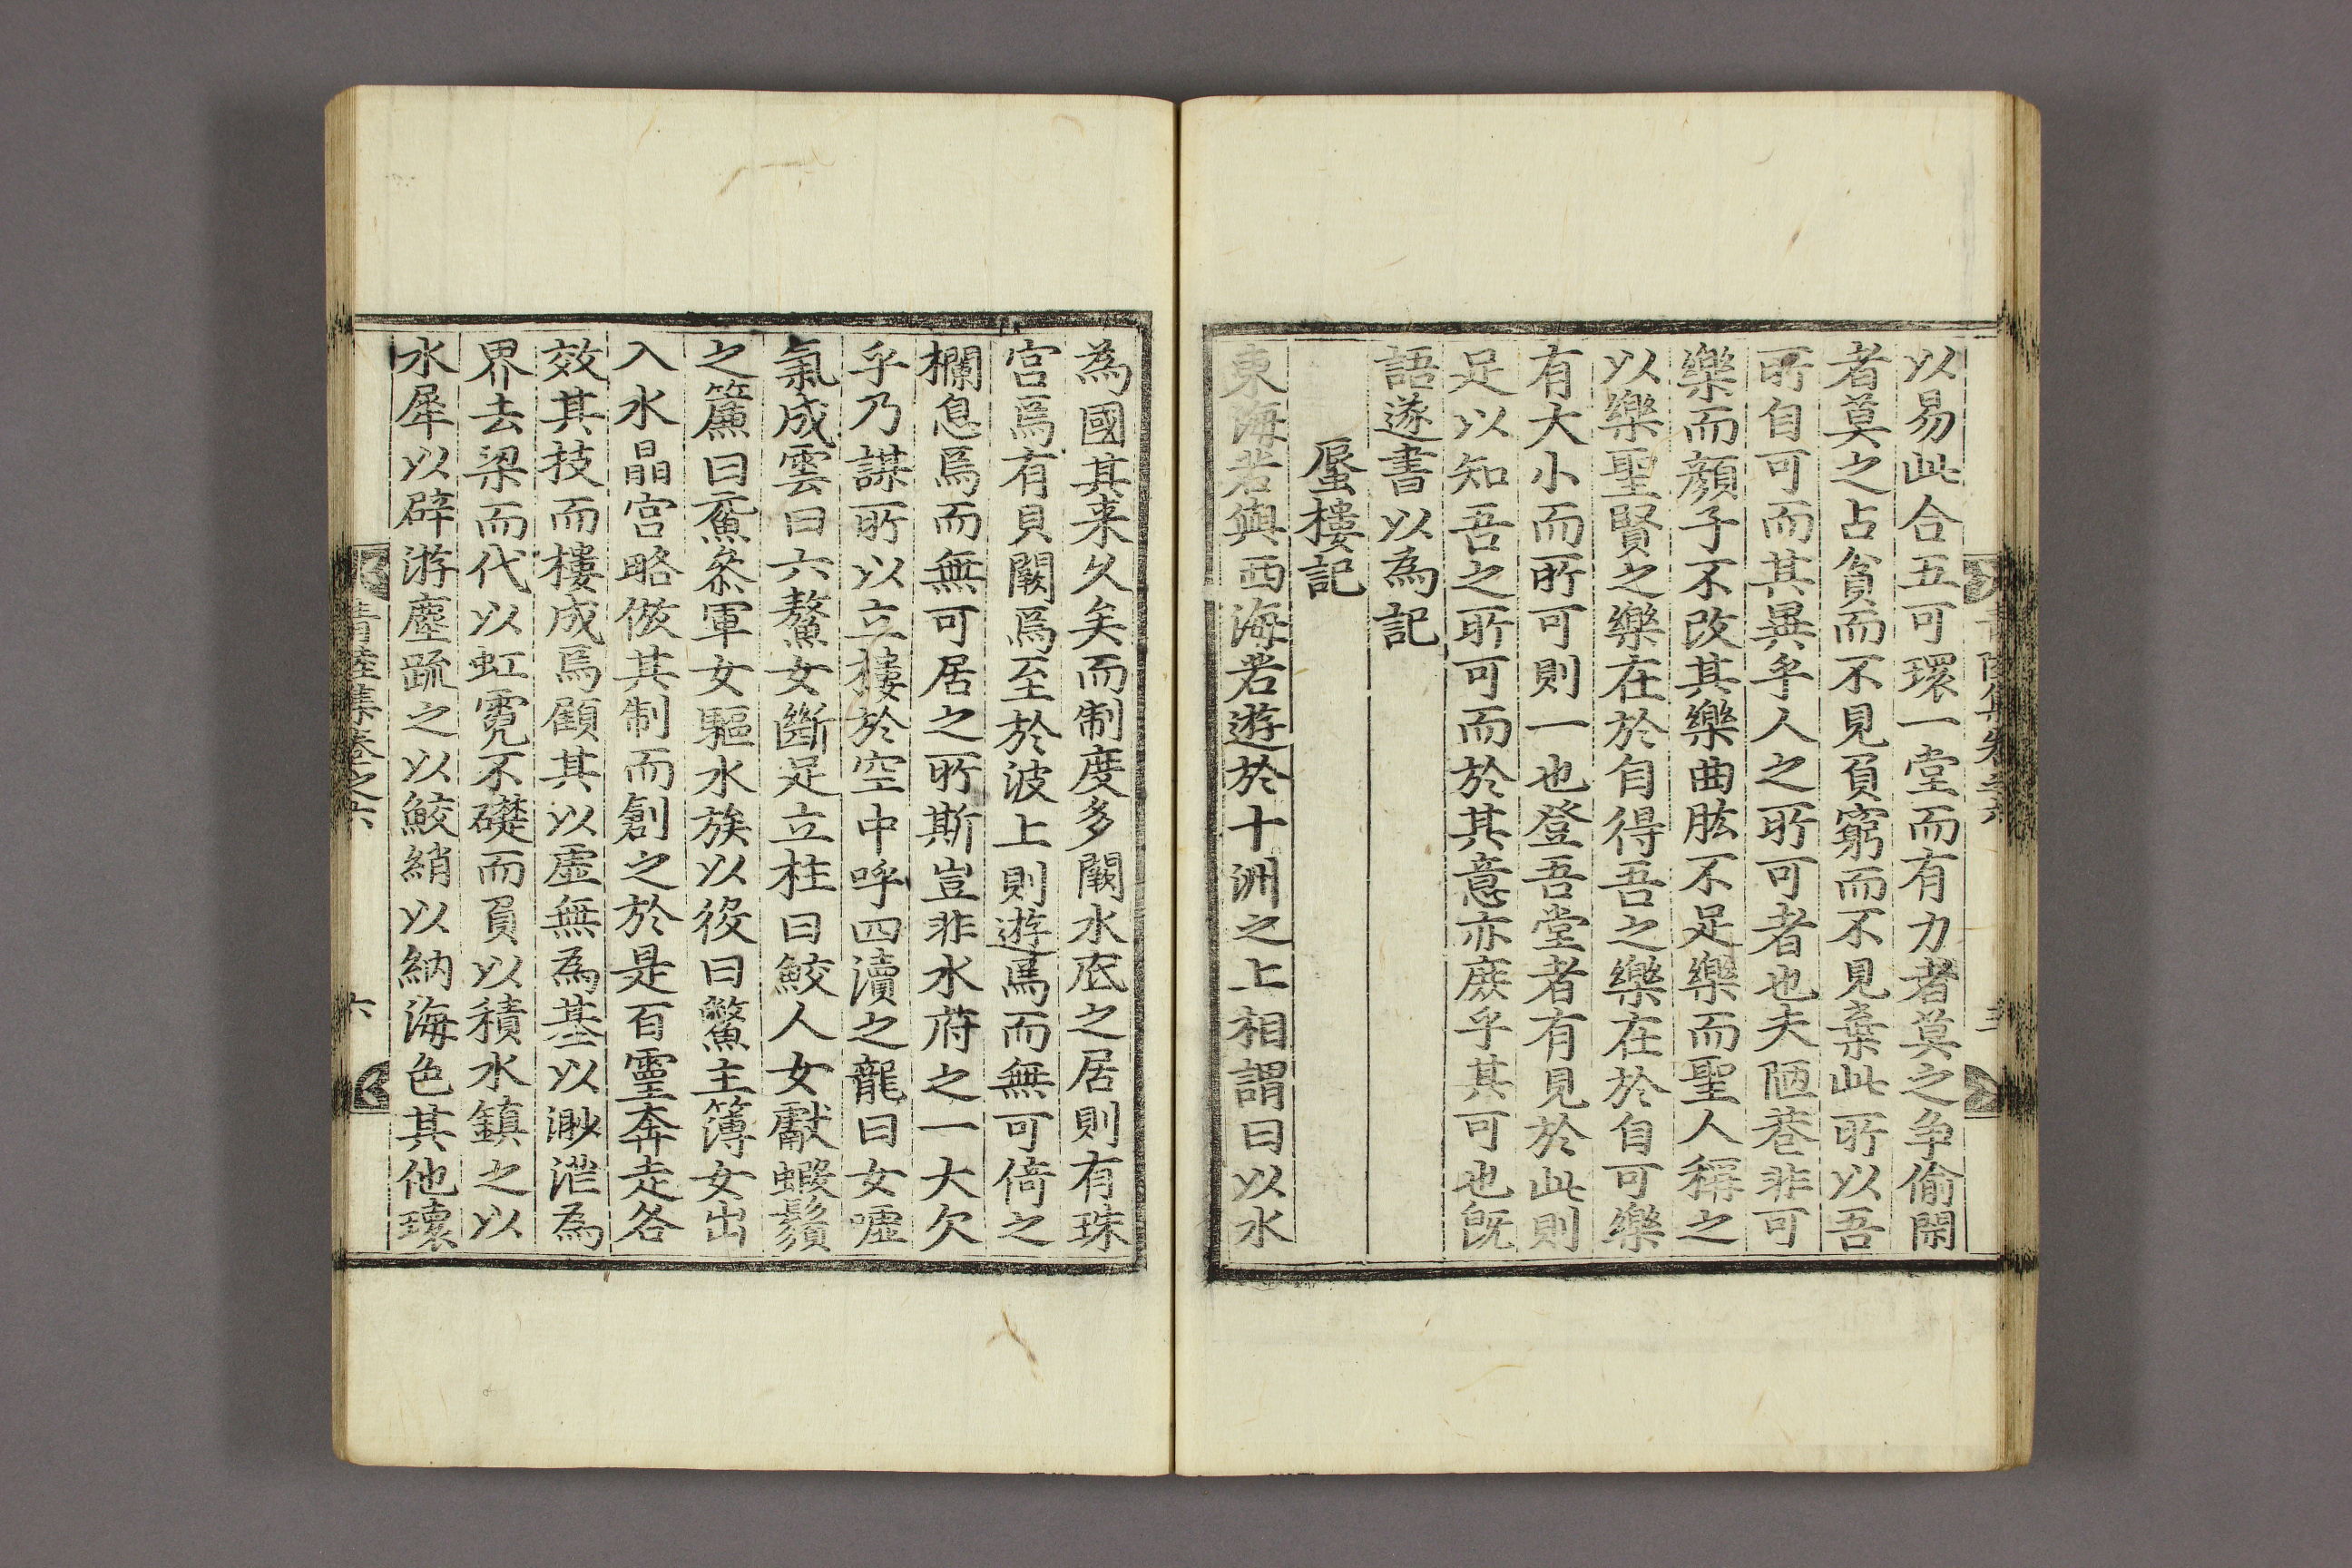 以易此合五可環一堂而有力者莫之争偷閑
者莫之占貧而不見負窮而不見棄此所以吾
所自可而其異乎人之所可者也夫陋巷非可
樂而顔子不改其樂曲肱不足樂而聖人稱之
以樂聖賢之樂在於自得吾之樂在於自可樂
有大小而所可則一也登吾堂者有見於此則
足以知吾之所可而於其意亦庶乎其可也旣
語遂書以為記
蜃樓記
東海若與西海若遊於十洲之上相謂曰以水
為國其来久矣而制度多闕水底之居則有珠
宮焉有貝闕焉至於波上則遊焉而無可倚之
欄息焉而無可居之所斯豈非水府之一大欠
乎乃謀所以立樓於空中呼四瀆之龍曰女噓
氣成雲曰六鰲女斷足立柱曰鮫人女獻蝦鬚
之簾曰黿叅軍女驅水族以役曰鱉主簿女出
入水晶宮略倣其制而創之於是百靈奔走各
效其技而樓成焉顧其以虛無為基以渺茫為
界去梁而代以虹霓不礎而負以積水鎮之以
水犀以辟游塵疏之以鮫綃以納海色其他瓌
青陸集卷之六
六